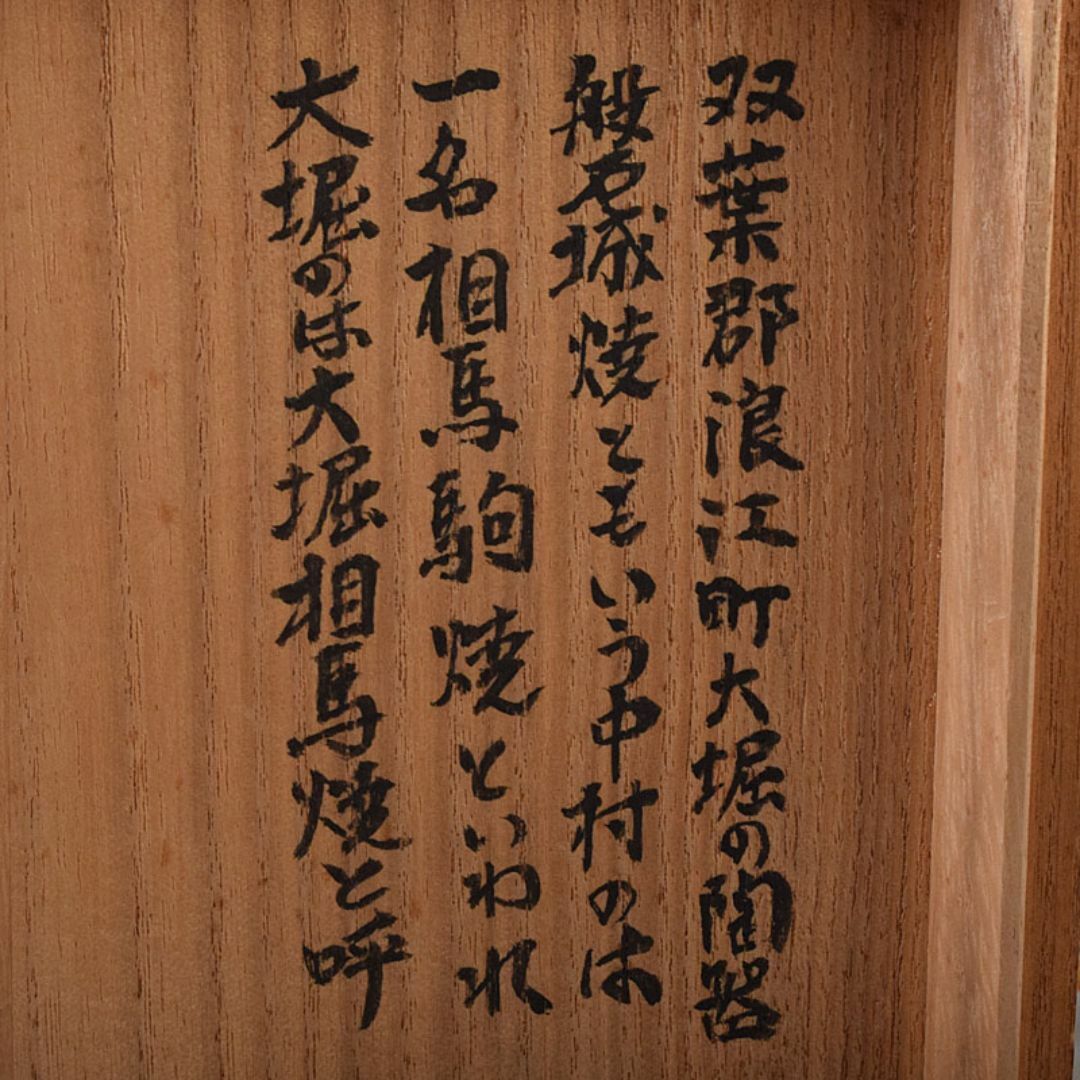 双葉郡浪江町大堀の陶器
般若城焼ともいう中村のは
一名相馬駒焼といわれ
大堀のは大堀相馬焼と呼